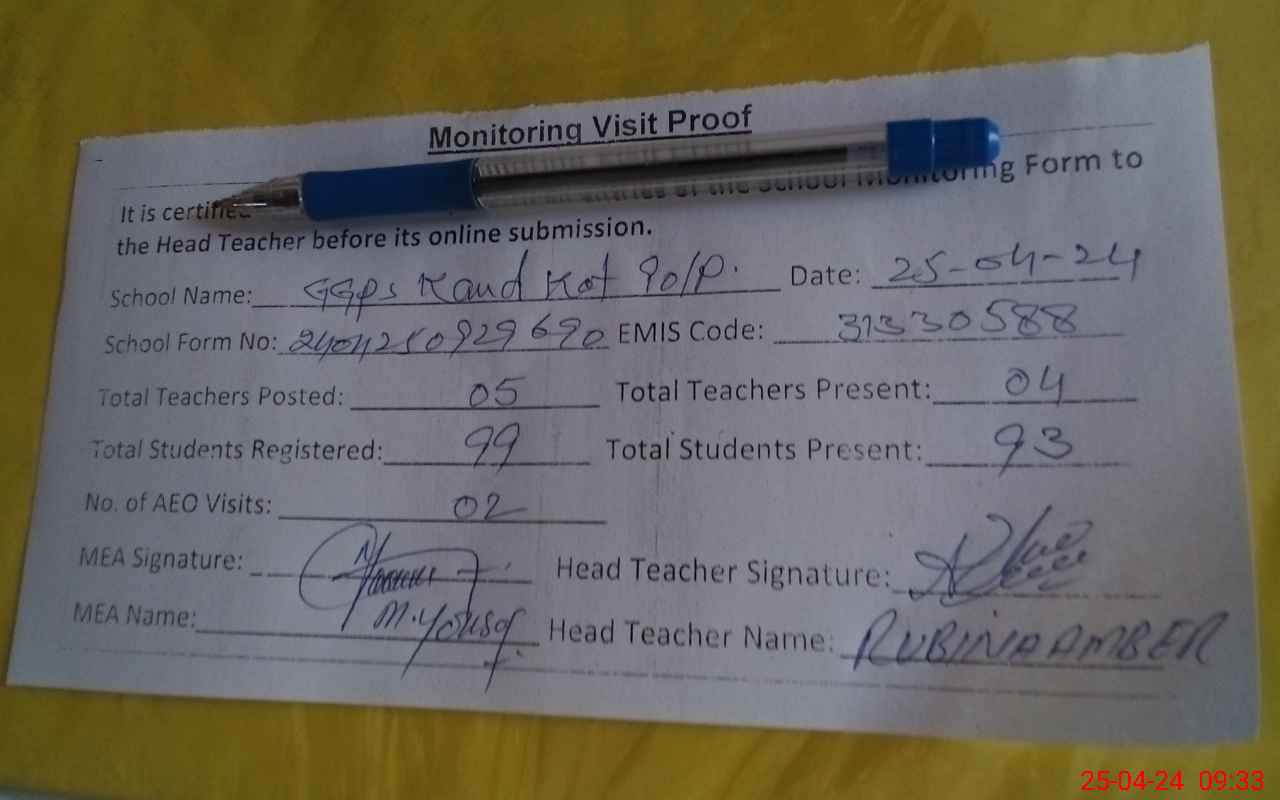 Monitoring Visit Proof
It is certified entries of the School Monitoring Form to
the Head Teacher before its online submission.
School Name: GGPS Kand Kot 90/P. Date: 25-04-24
School Form No: 240425092969​0 EMIS Code: 31330588
Total Teachers Posted: 05 Total Teachers Present: 04
Total Students Registered: 99 Total Students Present: 93
No. of AEO Visits: 02
MEA Signature: Head Teacher Signature:
MEA Name: M. Yousaf Head Teacher Name: RUBINA AMBER
25-04-24 09:33